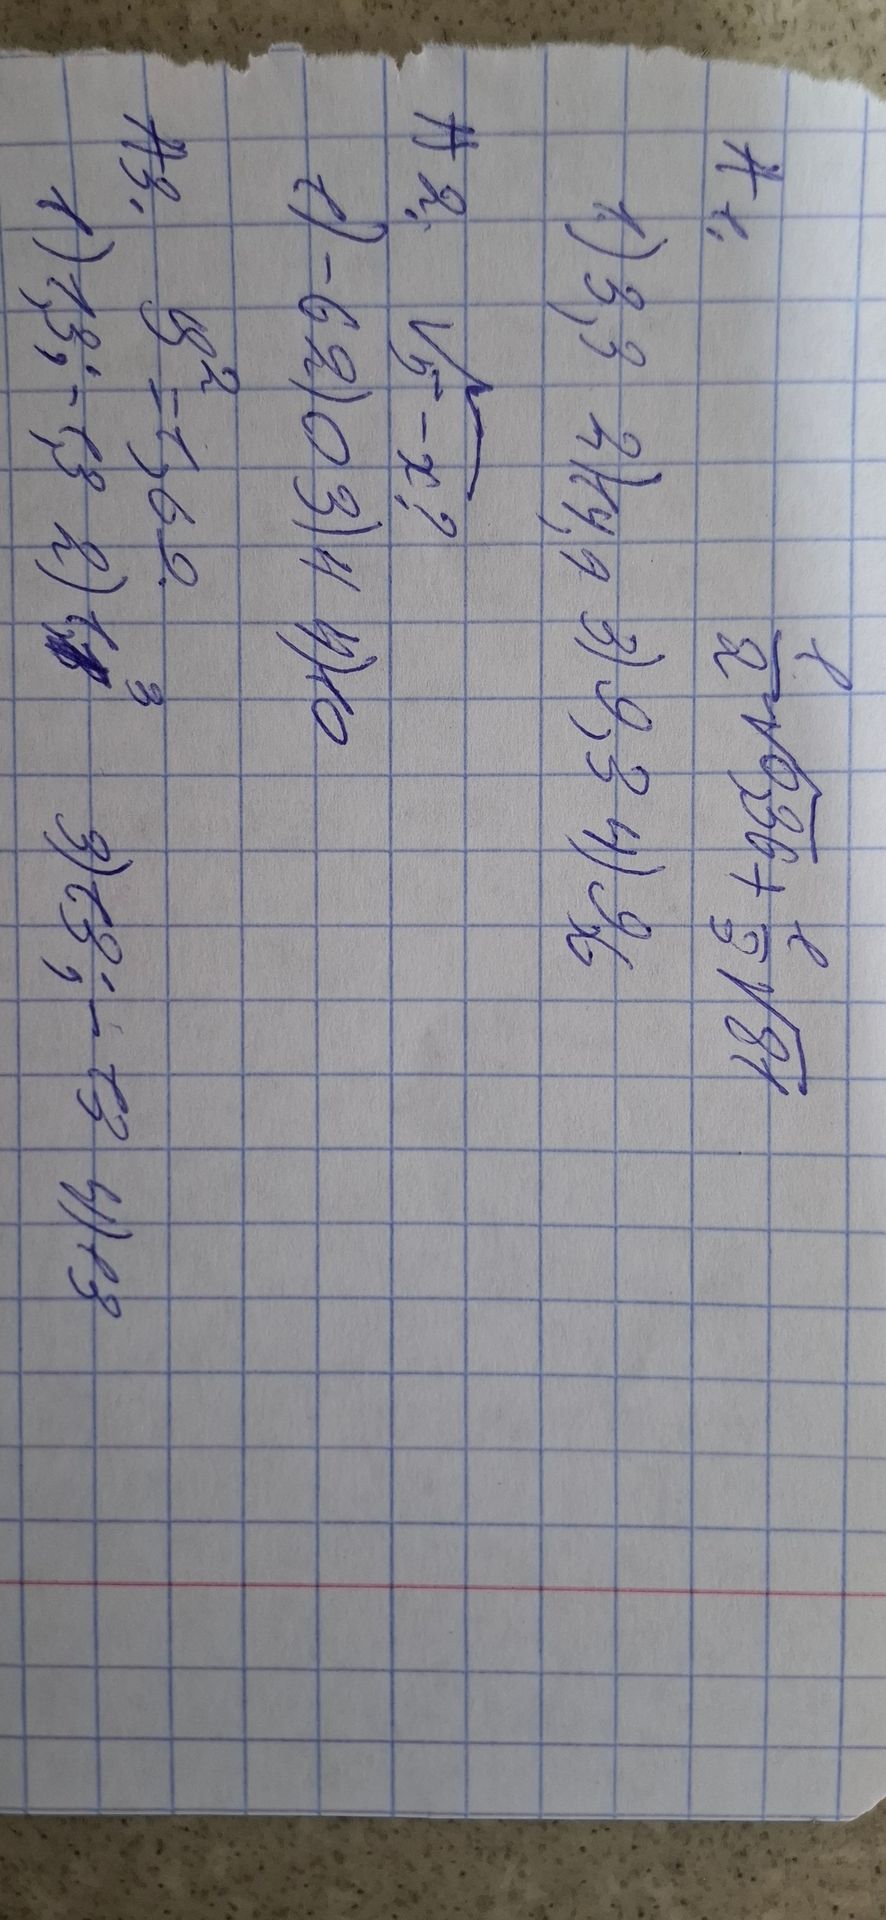 А 1. 1/2 √0,36 + 1/3 √81
1) 3,3 2) 4,9 3) 9,3 4) 9,6
А 2. √5-x ?
1) -6 2) 0 3) 4 4) 10
А 3. y² = 1,69.
1) 1,3; -1,3 2) 1,3 3) 13; -13 4) 13